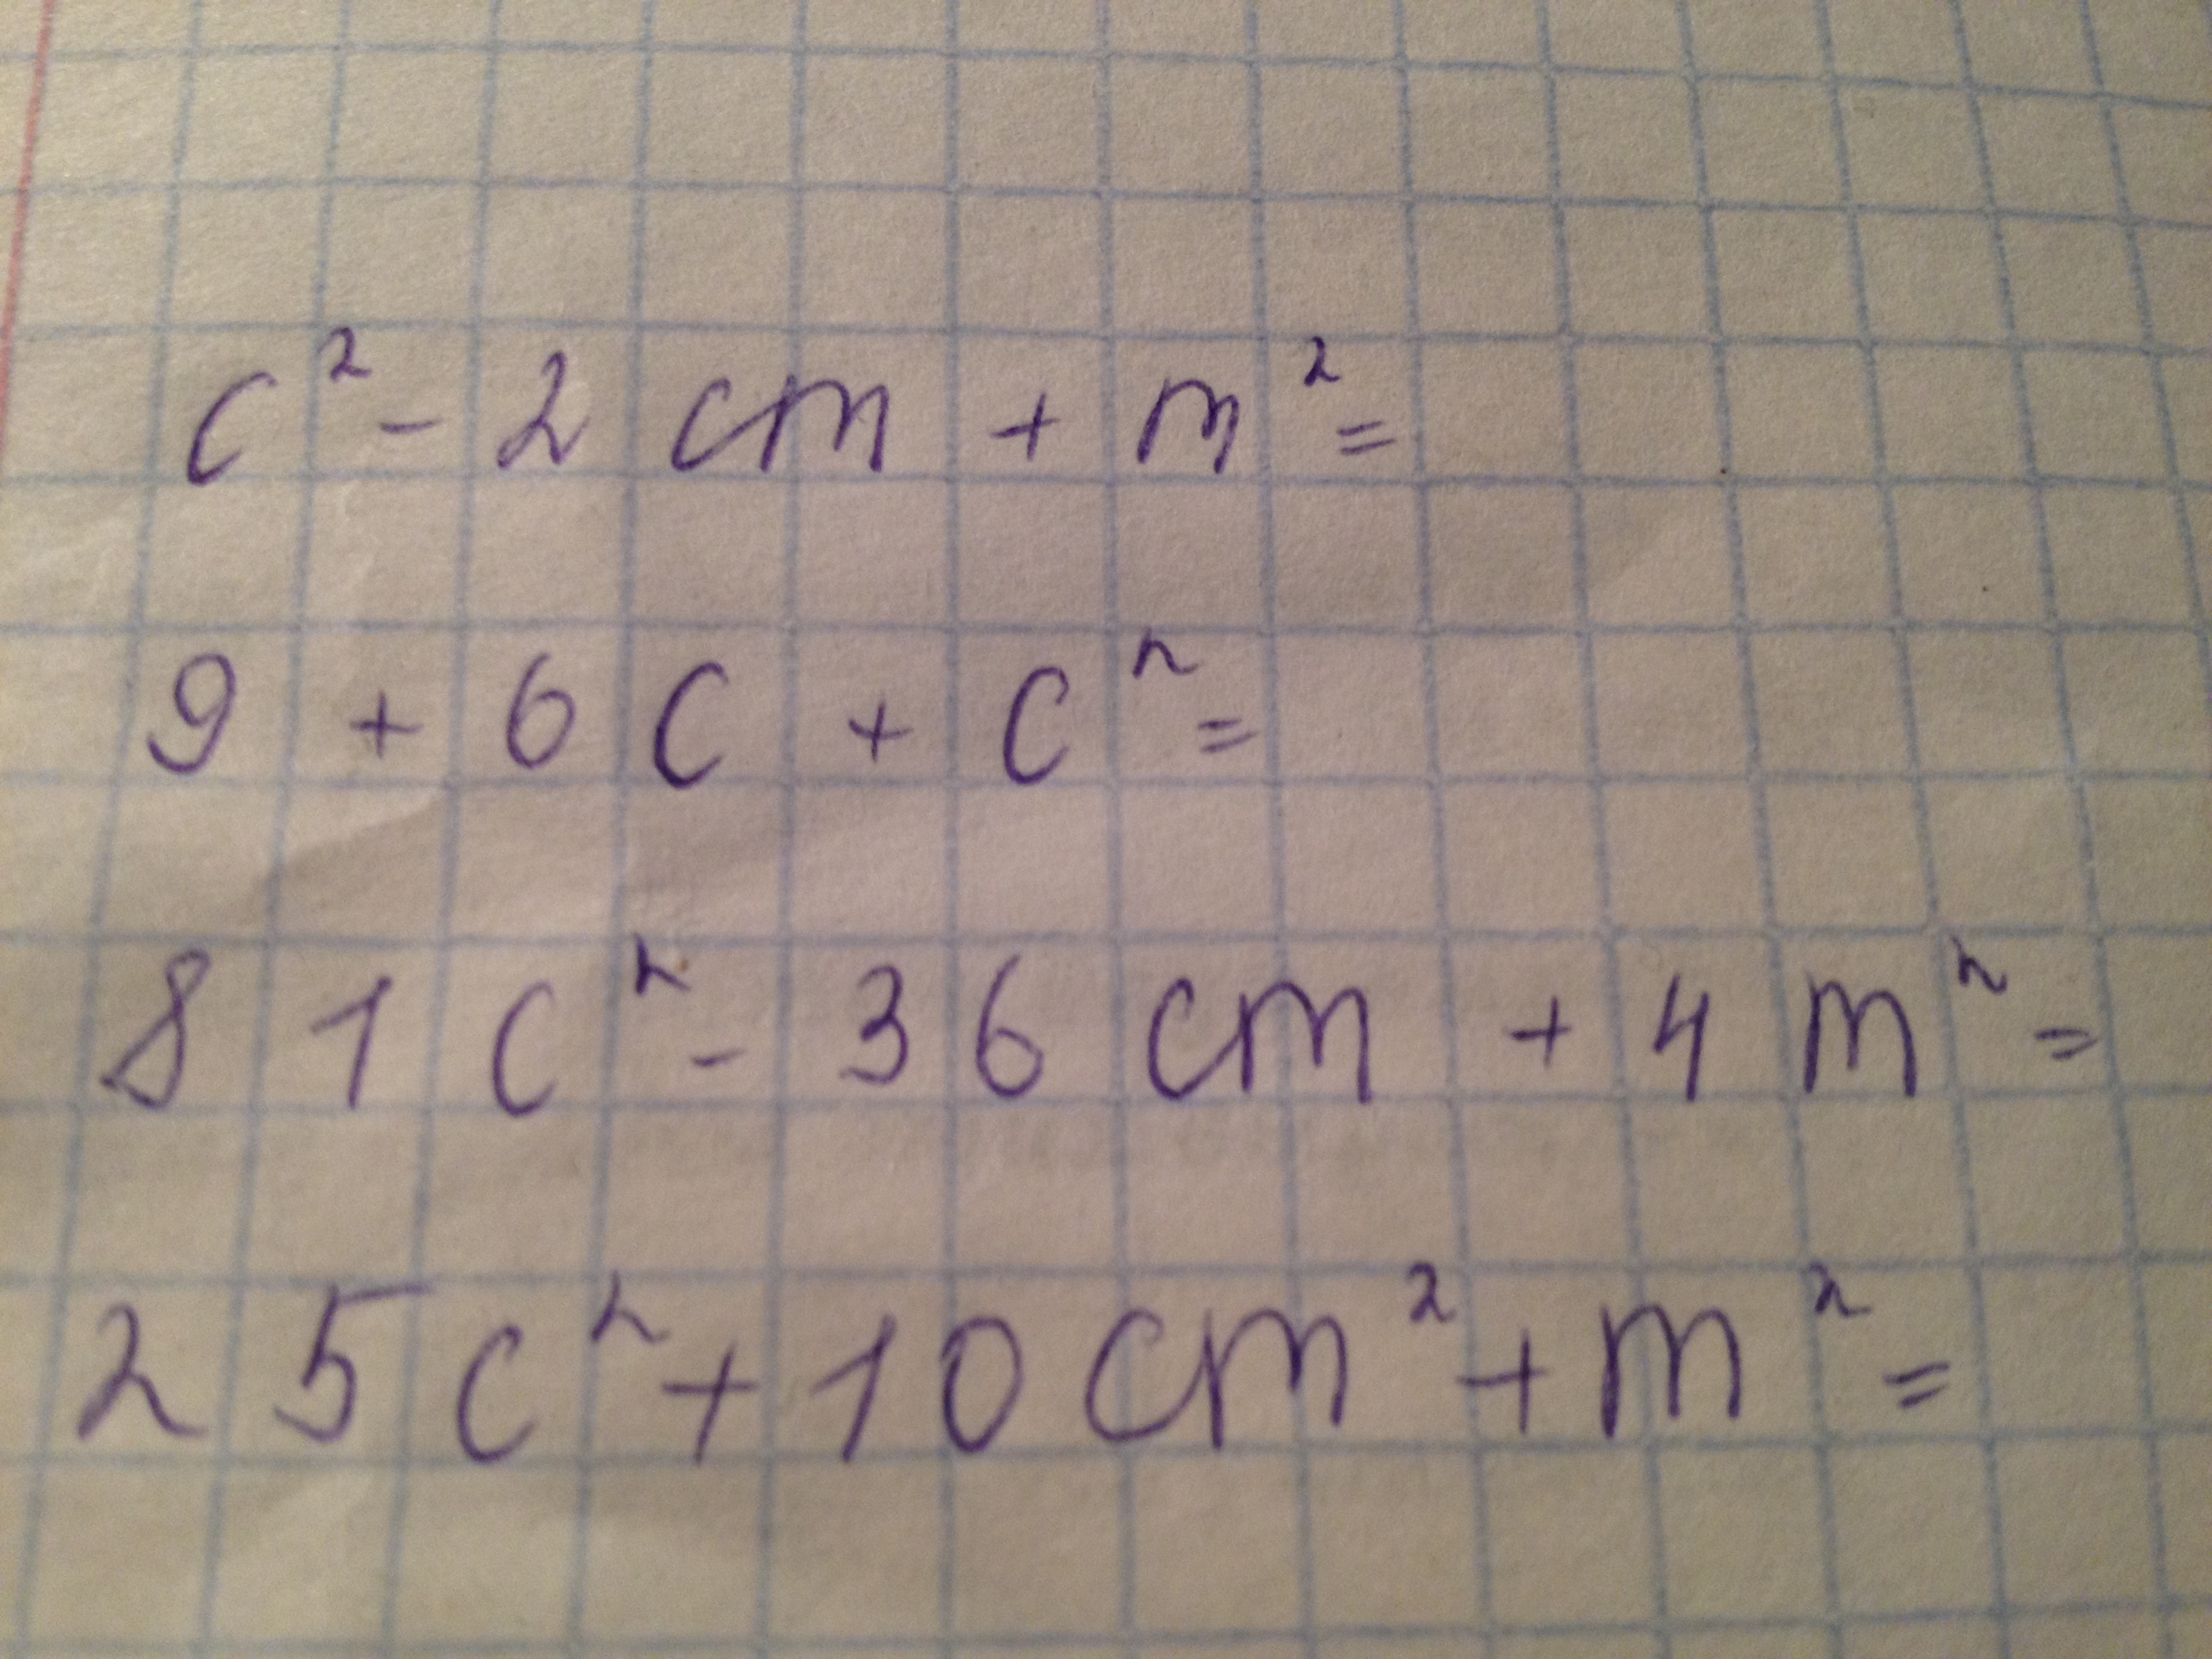 c² - 2 cm + m² =
9 + 6 c + c² =
81 c² - 36 cm + 4 m² =
25 c² + 10 cm² + m² =